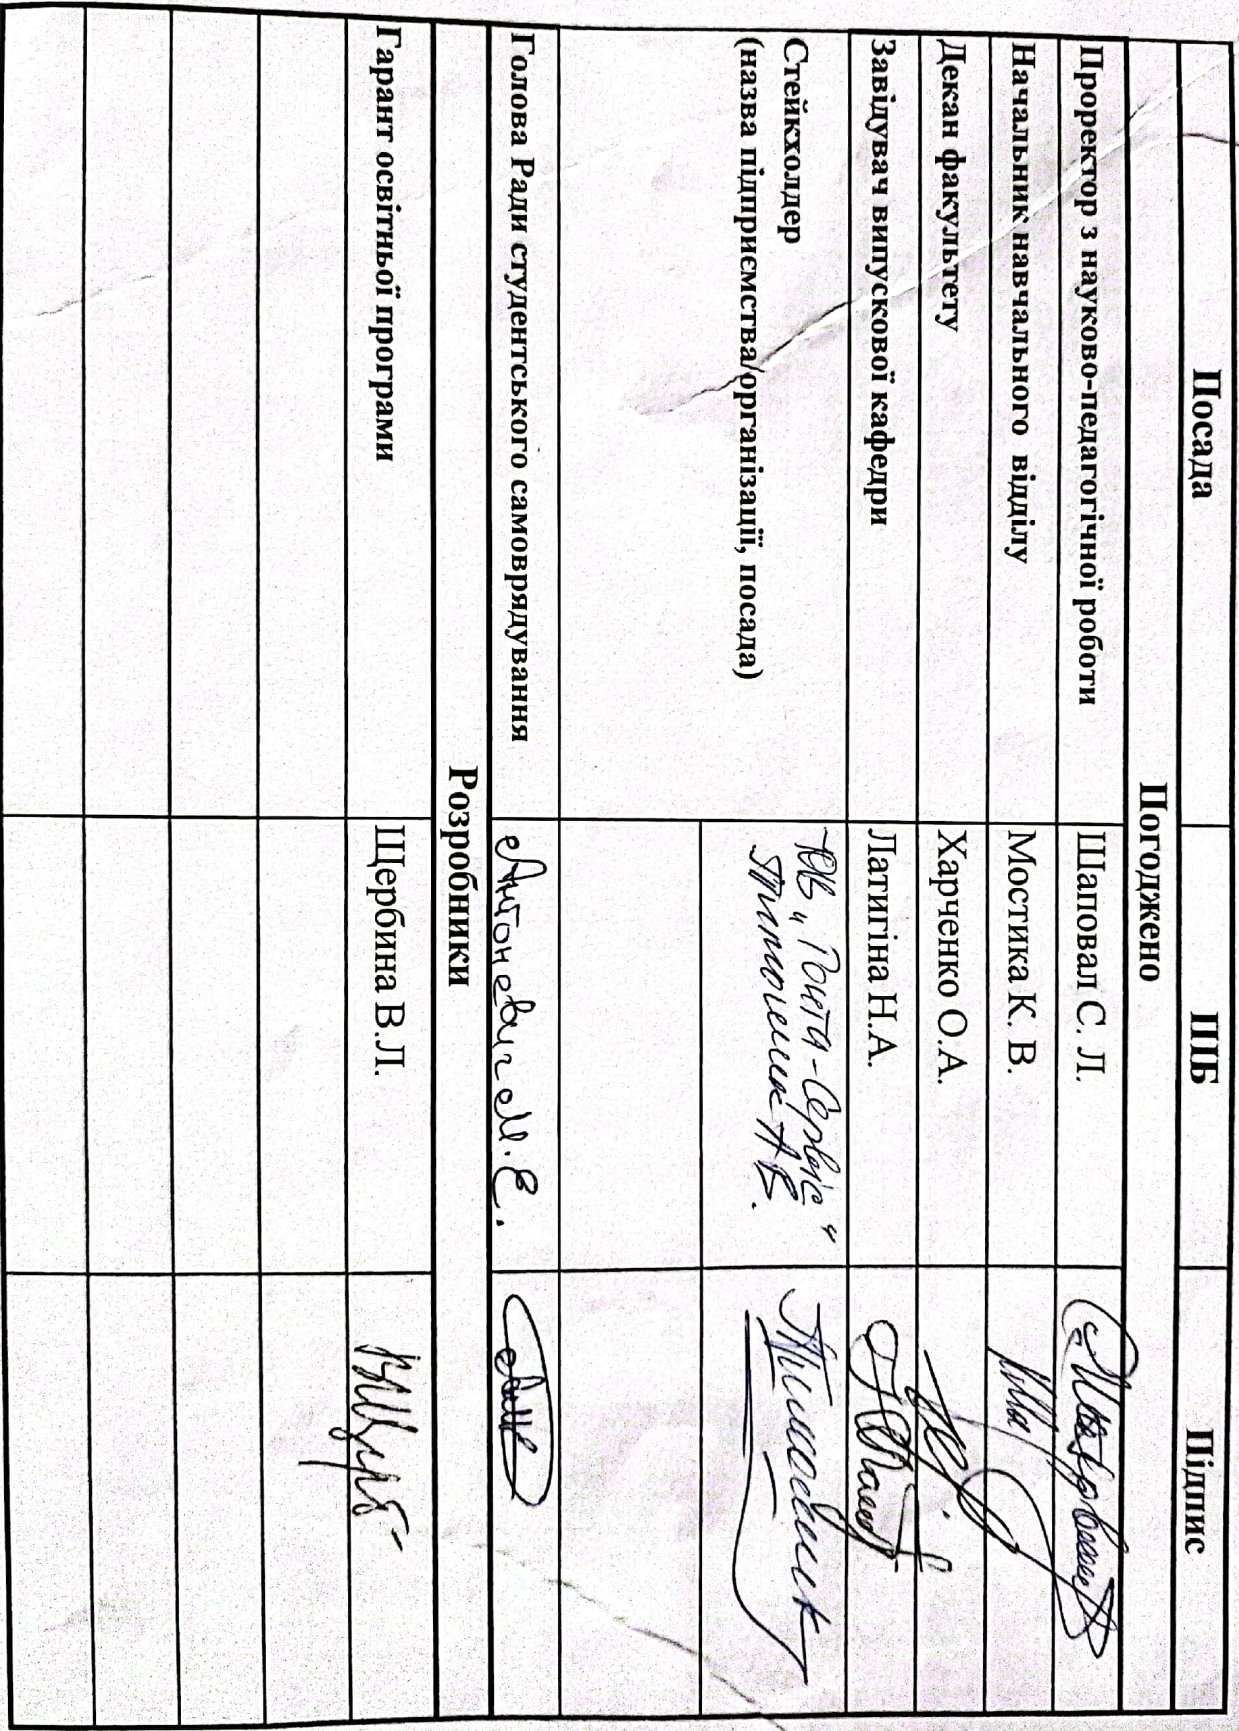 Посада ПІБ Підпис
Погоджено
Проректор з науково-педагогічної роботи Шаповал С. Л.
Начальник навчального відділу Мостика К. В.
Декан факультету Харченко О.А.
Завідувач випускової кафедри Латигіна Н.А.
Стейкхолдер
(назва підприємства/організації, посада)
„Понта-Сервіс“
Голова Ради студентського самоврядування Антоневич М.Є.
Розробники
Гарант освітньої програми Щербина В.Л.